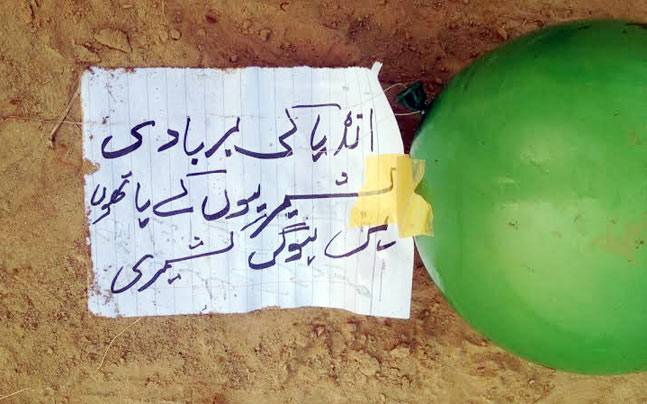 انڈیا کی بربادی
کشمیریوں کے ہاتھوں
میں ہوگی کشمیری